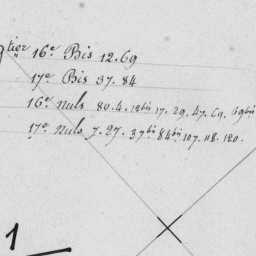 tier 16e Bis 12.69
17e Bis 37.84
16e nuls 80.4.12bis 17.29.47.69.69bis
17e nuls 7.27.37bis 84bis 107.118.120.
1